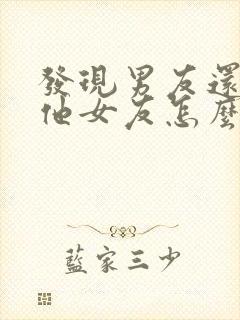 發現男友還
他女友怎麼
藍家三少